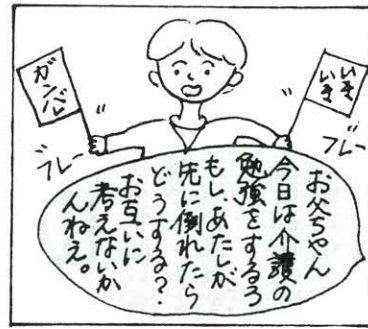 ガンバレ
いき
いき
フレー
フレー
お父ちゃん
今日は介護の
勉強をするろ
もし、あたしが
先に倒れたら
どうする？
お互いに
考えないか
んねえ。